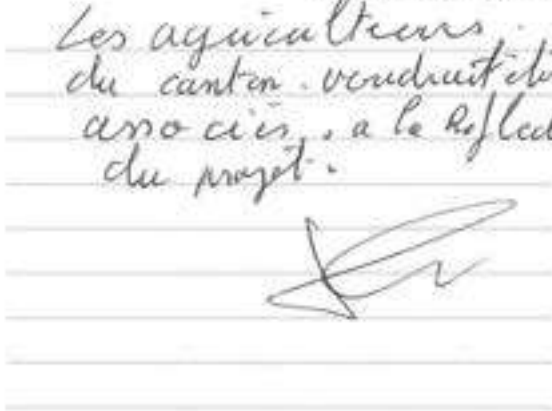 Les agriculteurs.
du canton. voudrait êt
associés. a la Réflec
du projet.